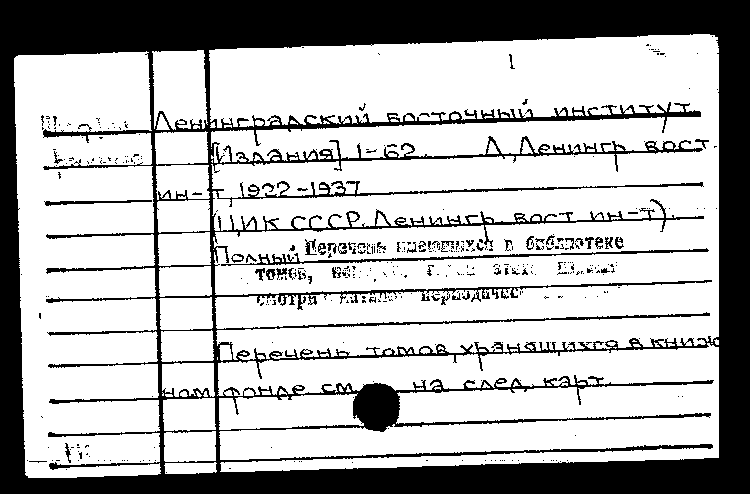 1
Шифры Ленинградский восточный институт
разные [Издания] 1-62. Л., Ленингр. вост.
ин-т, 1922-1937
(ЦИК СССР. Ленингр. вост. ин-т).
Полный Перечень имеющихся в библиотеке
томов, этого
смотри каталог
Перечень томов, хранящихся в книж
ном фонде см. на след. карт.